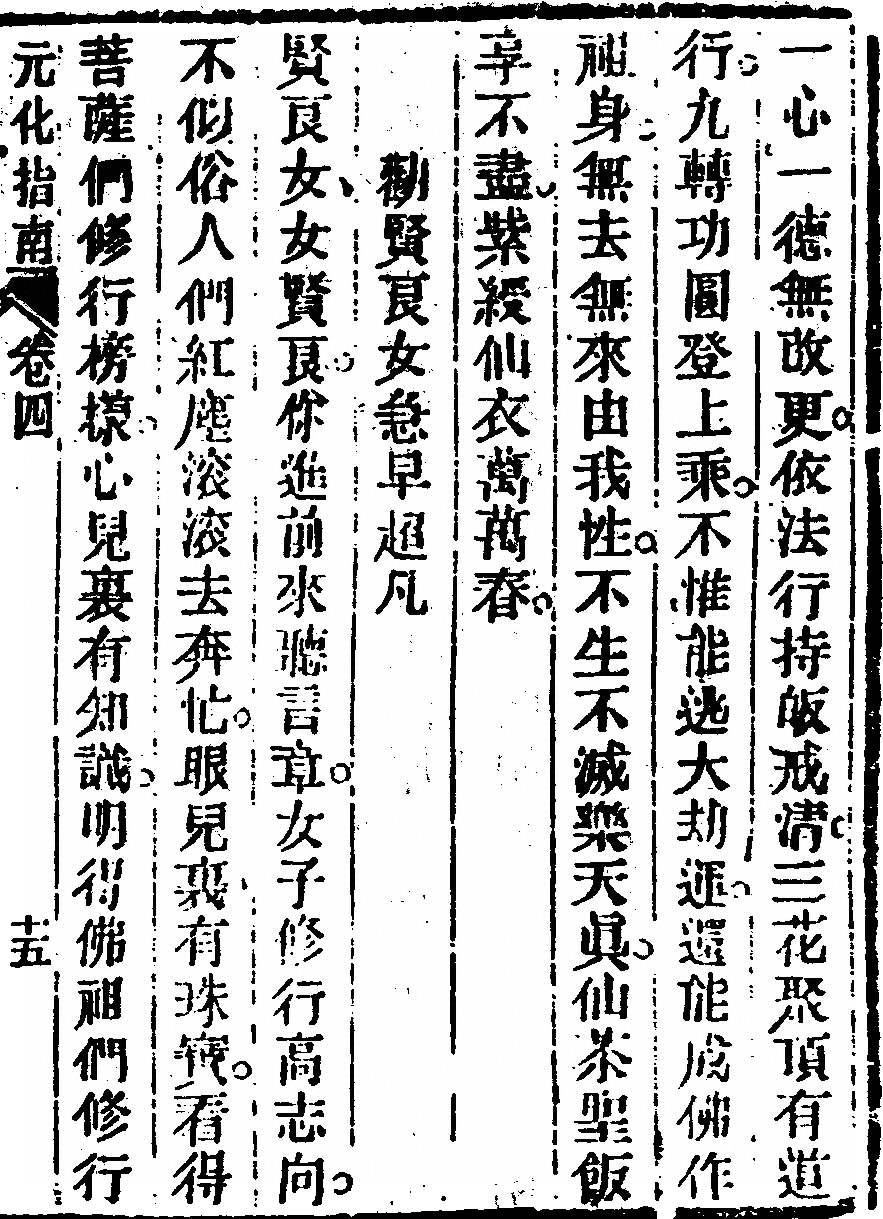 一心一德無改更依法行持皈戒清三花聚頂有道
行九轉功圓登上乘不惟能逃大劫運還能成佛作
祖身無去無來由我性不生不滅樂天眞仙茶聖飯
享不盡紫綬仙衣萬萬春
勸賢良女急早超凡
賢良女女賢良你進前來聽言章女子修行高志向
不似俗人們紅塵滚滚去奔忙眼兒裏有珠寶看得
菩薩們修行榜樣心兒裏有知識明得佛祖們修行
元化指南 卷四 十五